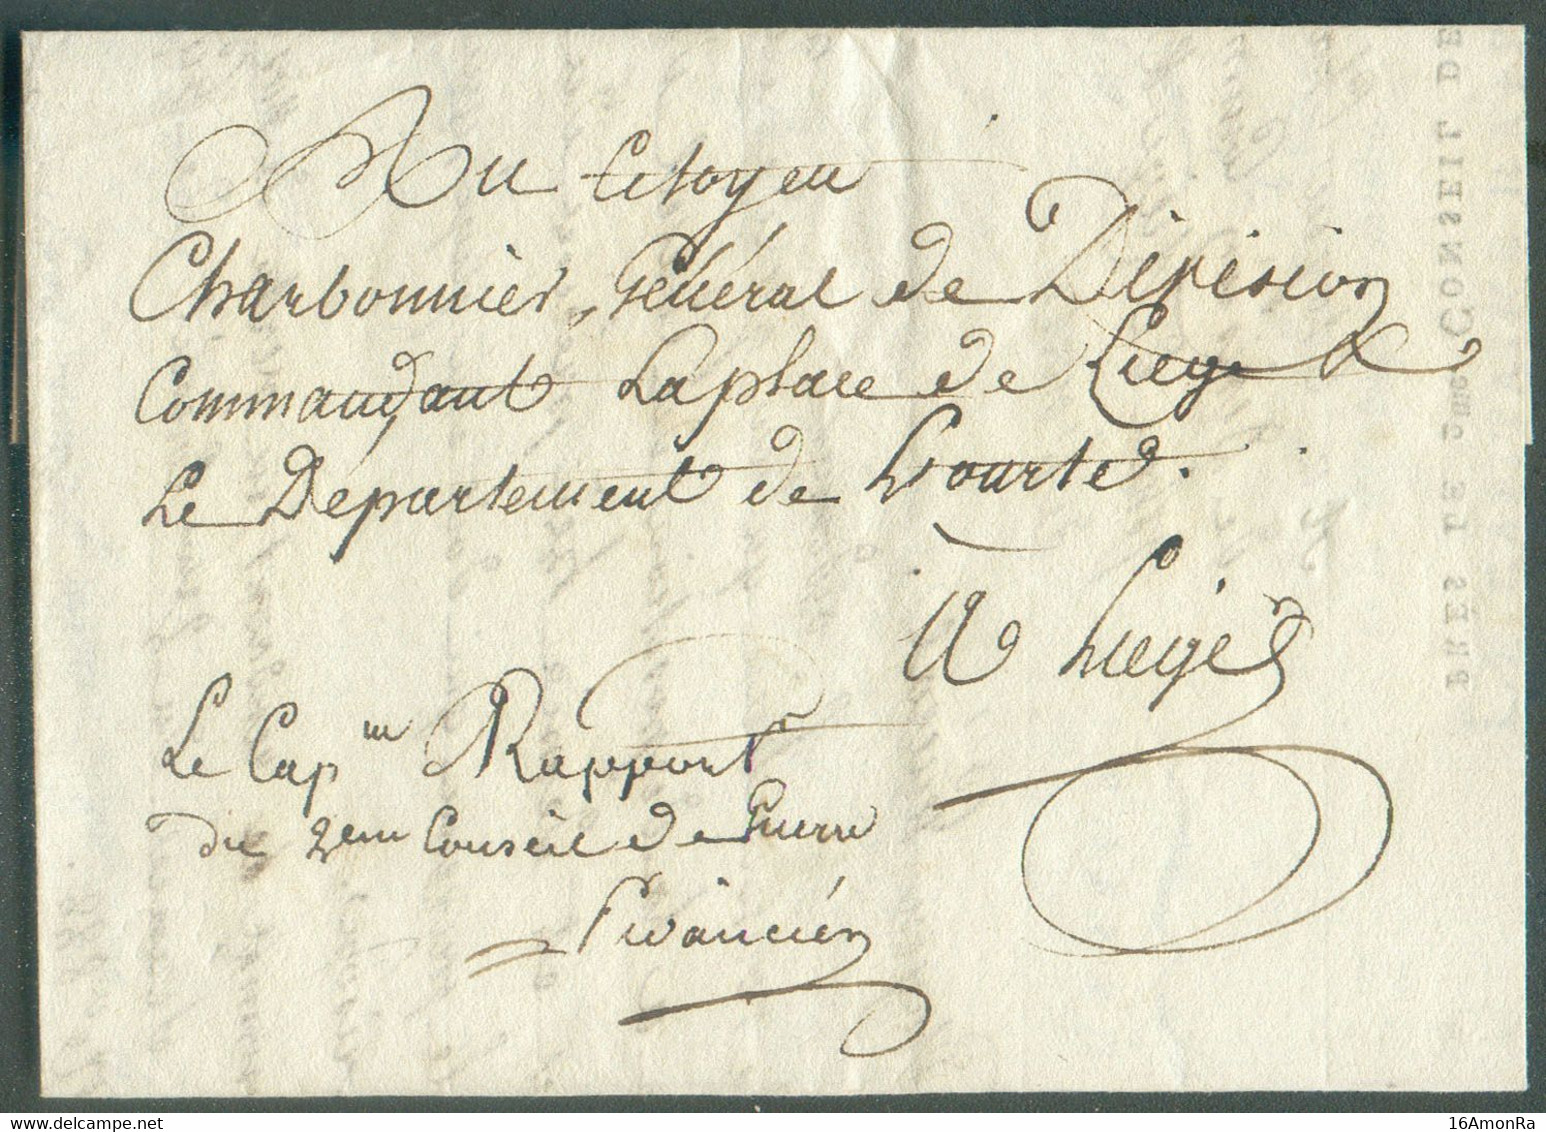 Au Citoyen
Charbonnier, Général de Division
Commandant La place de Liege &
Le Département de Lourte.
A Liege
Le Cap.ne Rapport
du 2em Conseil de Guerre
PRÈS LE 2me CONSEIL DE
16AmonRa